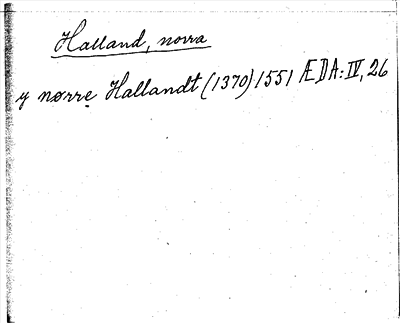 Halland, norra
y nørre Hallandt (1370) 1551 ÆDA: IV, 26